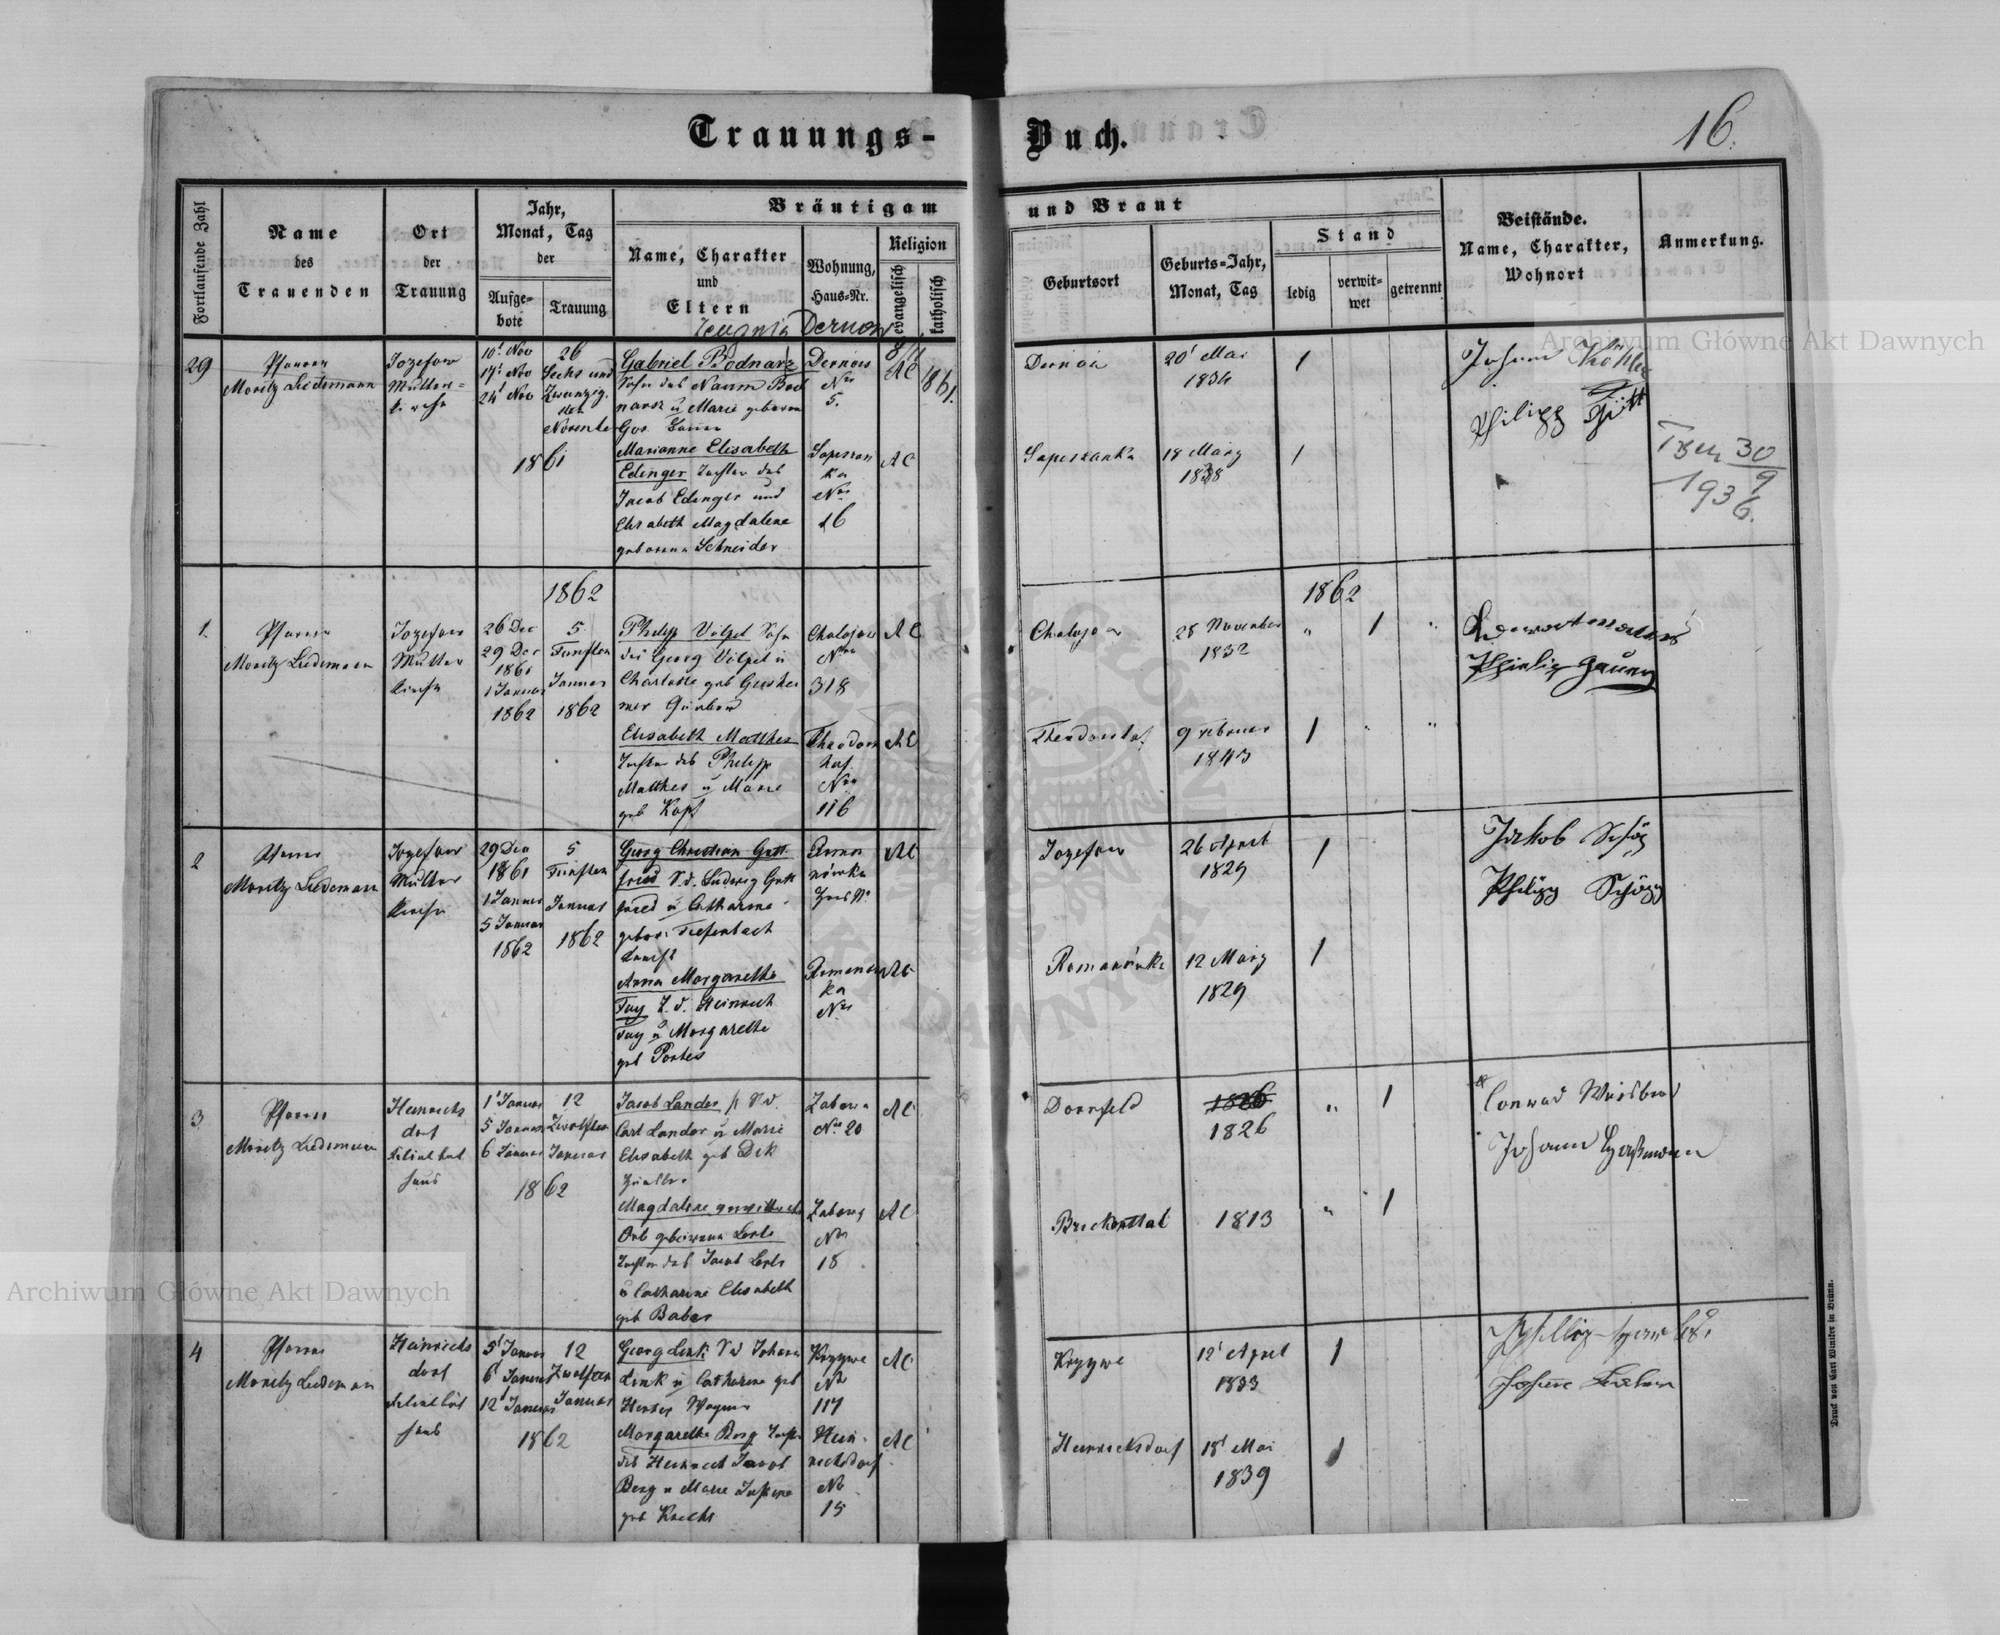 Trauungs-Buch.
16.
Fortlaufende Zahl
Name
des
Trauenden
Ort
der
Trauung
Jahr,
Monat, Tag
der
Aufge-
bote
Trauung
Bräutigam
und Braut
Name, Charakter
und
Eltern
Wohnung,
Haus-Nr.
Religion
evangelisch
katholisch
Geburtsort
Geburts-Jahr,
Monat, Tag
Stand
ledig
verwit-
wet
getrennt
Beistände.
Name, Charakter,
Wohnort
Anmerkung.
29
Pfarrer
Moritz Liedemann
Jozefow
Mutter-
kirche
10t Nov
17t Nov
24t Nov
26
Sechs und
Zwanzig-
sten
November
1861
Dernow
8/11
1861.
Gabriel Bodnarz
Sohn des Naum Bod
narz u Marie geboren
Dernow
Nro
5.
AC
Dernow
20t Mai
1834
1
Johann Köhler
Philipp
Marianne Elisabeth
Edinger Tochter des
Jacob Edinger und
Elisabeth Magdalene
geborene Schneider
Sapezan
ka
Nro
16
AC
Sapezanka
18 März
1838
1
30
9
1936.
1862
1862
1.
Pfarrer
Moritz Liedemann
Jozefow
Mutter
kirche
26 Dec
29 Dec
1861
1 Januar
1862
5
Fünften
Januar
1862
Philipp Völpel Sohn
des Georg Völpel u
Charlotte geb
Nro
318
AC
28 November
1832
" 1 "
Elisabeth Matthes
Tochter des Philipp
Matthes u Marie
geb Kopf
Theodors
hof
Nro
116
AC
Theodorshof
9 Februar
1843
1 " "
2
Pfarrer
Moritz Liedemann
Jozefow
Mutter
kirche
29 Dec
1861
1 Januar
5 Januar
1862
5
Fünften
Januar
1862
Georg Christian Gott
fried S. d. Ludwig Gott
fried u Catharine
gebor. Tiefenbach
Roman
nówka
AC
Jozefow
26 April
1829
1
Jakob Schöpp
Philipp Schöpp
Anna Margarethe
Fay T. d. Heinrich
Fay u Margarethe
geb Portes
Romanow
ka
Nro
AC
Romanówka
12 März
1829
1
3
Pfarrer
Moritz Liedemann
Heinrichs
dorf
Filial bet
haus
1t Januar
5 Januar
6 Januar
12
Zwölften
Januar
1862
Jacob Lander S. d.
Carl Lander u Marie
Elisabeth geb Dek
Nro 20
AC
Dornfeld
1826
1826
" 1
Conrad Weisbrod
Johann
Magdalene verwittwete
Orb geborene Lerte
Tochter des Jacob Lerte
u Catharine Elisabeth
geb Baber
Nro
18
AC
Brickenthal
1813
" 1
4
Pfarrer
Moritz Liedeman
Heinrichs
dorf
Filial bet
haus
5t Januar
6t Januar
12t Januar
12
Zwölften
Januar
1862
Georg Link S d Johann
Link u Catharine geb
Krzywe
No
117
AC
Krzywe
12t April
1833
1
Margarethe Berg Tochter
des Heinrich Jacob
Berg u Marie
geb Knecht
Hein-
richsdorf
No
15
AC
Heinrichsdorf
18t Mai
1839
1
Druck von Carl Winiker in Brünn.
Archiwum Główne Akt Dawnych
Archiwum Główne Akt Dawnych
ARCHIWUM GŁÓWNE AKT DAWNYCH